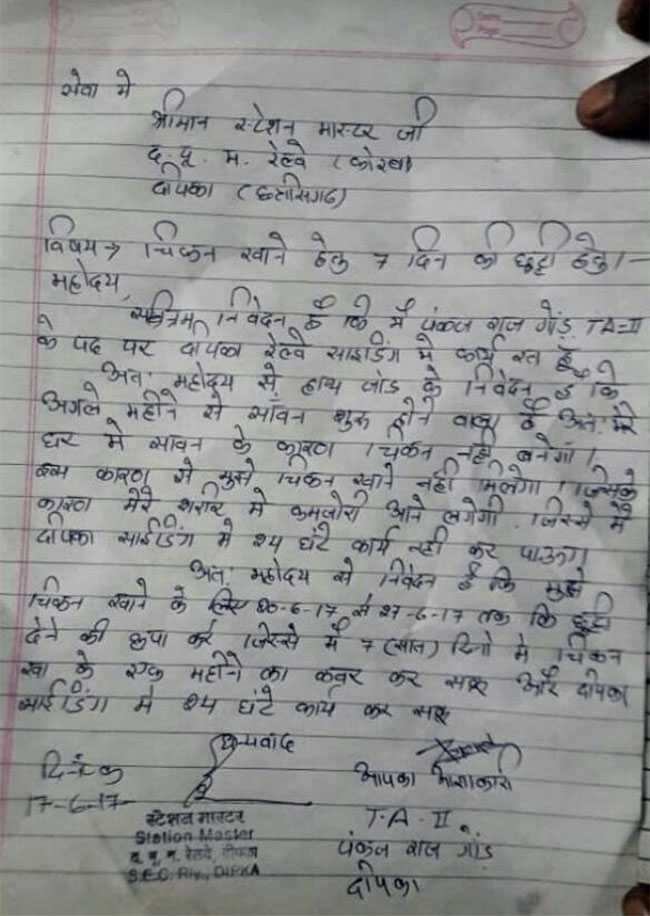 सेवा मे
श्रीमान स्टेशन मास्टर जी
द. पू. म. रेल्वे (कोरबा)
दीपका (छत्तीसगढ)
विषय → चिकन खाने हेतु 7 दिन की छुट्टी हेतु।-
महोदय,
सविनम्र निवेदन है कि मै पंकज राज गोंड़ TA-II
के पद पर दीपका रेल्वे साइडिंग मे कार्य रत हूँ
अतः महोदय से हाथ जोड के निवेदन है कि
अगले महीने से साँवन शुरू होने वाला है अतः मेरे
घर मे सावन के कारण चिकन नही बनेगा।
इस कारण से मुझे चिकन खाने नही मिलेगा। जिसके
कारण मेरे शरीर मे कमजोरी आने लगेगी. जिस्से मै
दीपका साईडिंग मे 24 घंटे कार्य नही कर पाऊगा
अतः महोदय से निवेदन है कि मुझे
चिकन खाने के लिए 20-6-17 से 27-6-17 तक कि छुट्टी
देने की कृपा करे जिस्से मै 7 (सात) दिनो मे चिकन
खा के एक महीने का कवर कर सकू और दीपका
साईडिंग मे 24 घंटे कार्य कर सकू
धन्यवाद
दिनांक
17-6-17
आपका आज्ञाकारी
T.A-II
पंकज राज गोंड
दीपका
स्टेशन मास्टर
Station Master
द. पू. म. रेलवे, दीपका
S.E.C. Rly., DIPKA